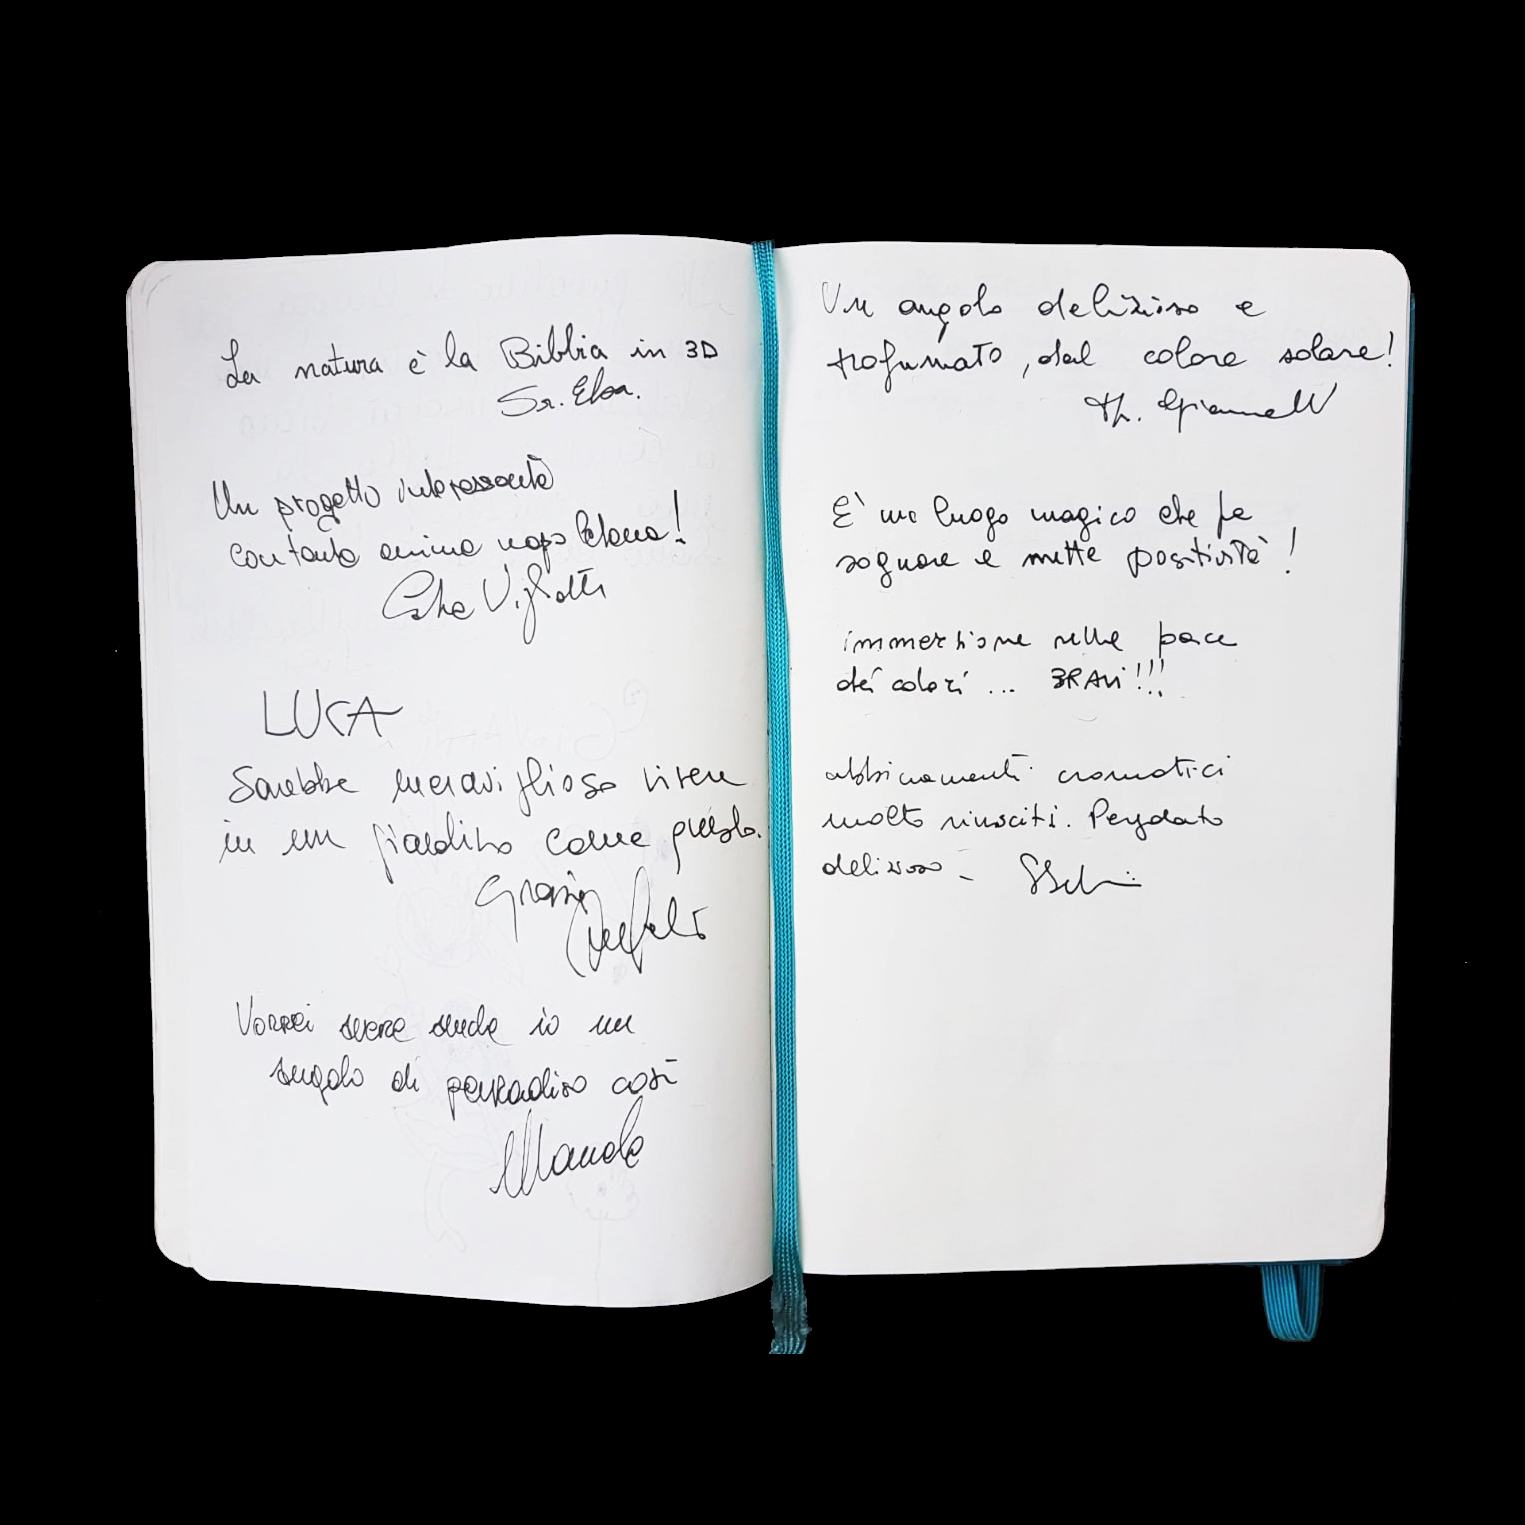 La natura è la Bibbia in 3D
Sr. Elsa.
Un progetto interessante
con tanta anima napoletana!
LUCA
Sarebbe meraviglioso vivere
in un giardino come questo.
Grazie
Vorrei avere anche io un
angolo di paradiso così
Manola
Un angolo delizioso e
profumato, dal colore solare!
E' un luogo magico che fa
sognare e mette positività!
immersione nella pace
dei colori ... BRAVI!!!
abbinamenti cromatici
molto riusciti. Pergolato
delizioso -